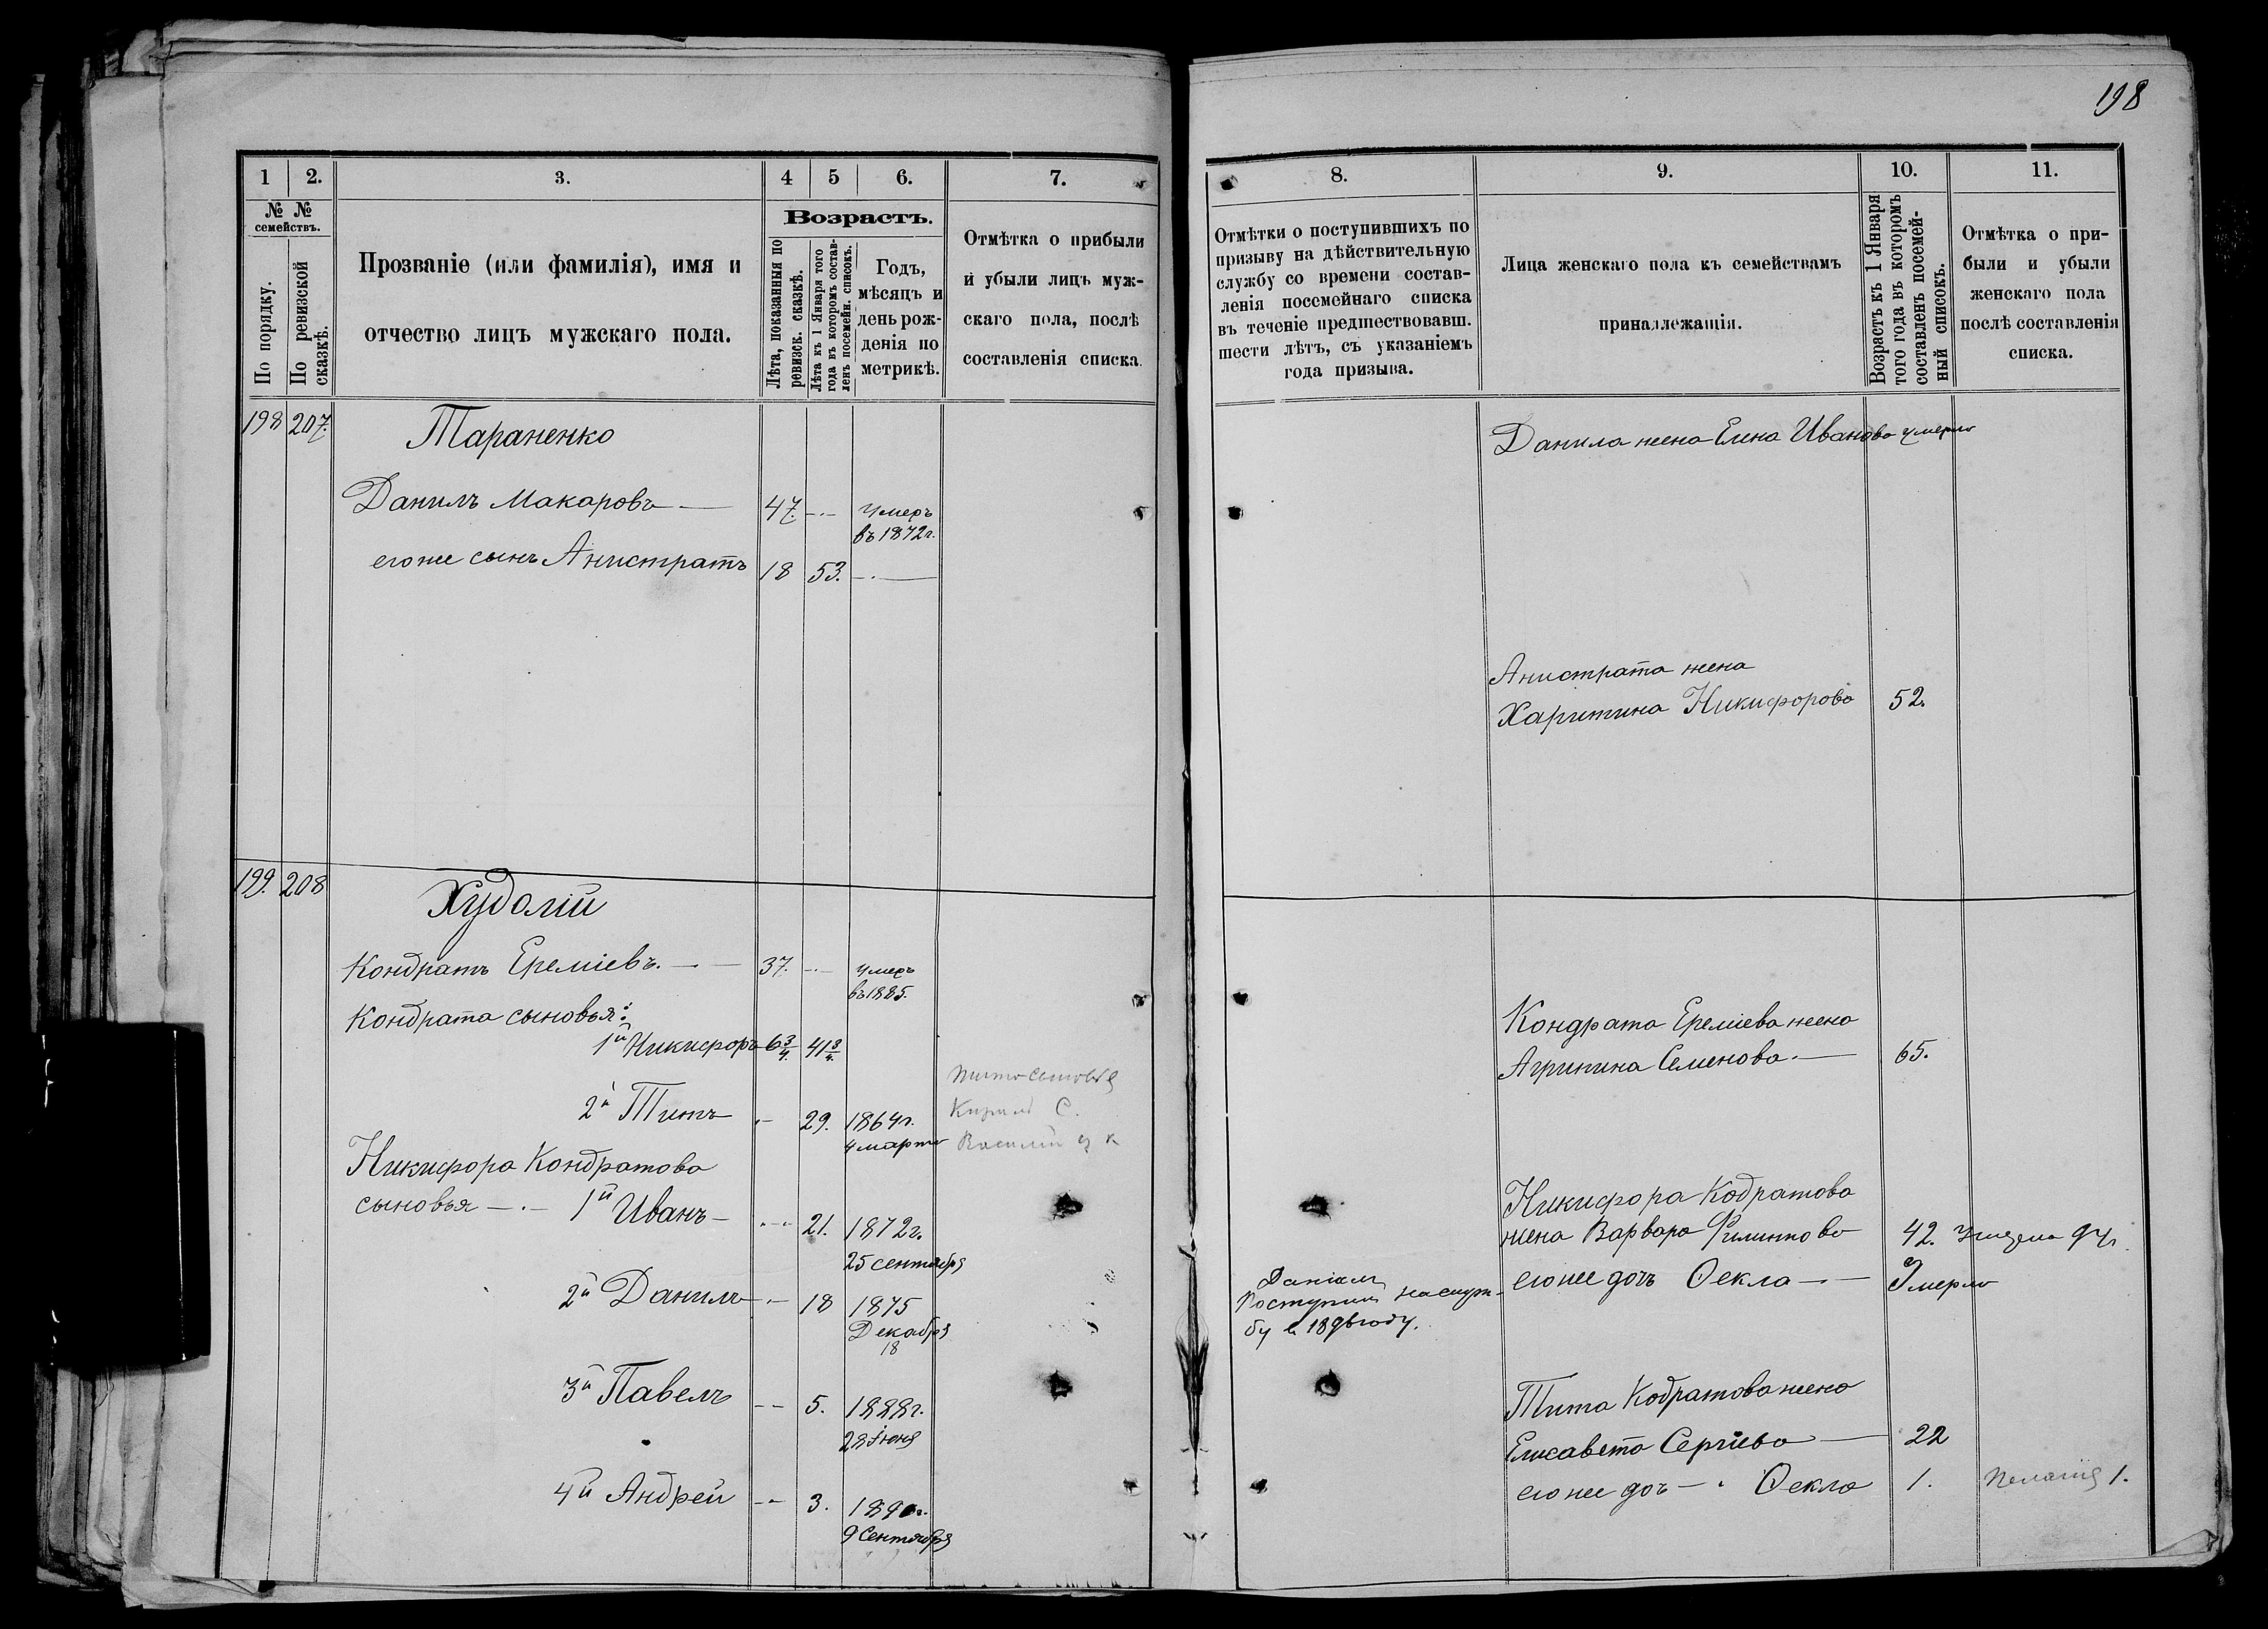 198
1
2.
3.
4
5
6.
7.
№ №
семействъ.
По порядку.
По ревизской
сказкѣ.
Прозваніе (или фамилія), имя и
отчество лицъ мужскаго пола.
Возрастъ.
Лѣта, показанныя по
ревизск. сказкѣ.
Лѣта къ 1 Января того
года въ которомъ состав-
ленъ посемейн. списокъ.
Годъ,
мѣсяцъ и
день рож-
денія по
метрикѣ.
Отмѣтка о прибыли
и убыли лицъ муж-
скаго пола, послѣ
составленія списка.
198 207.
Тараненко
Данилъ Макаровъ — 47. -·-
умеръ
въ 1872г.
его же сынъ Анистратъ 18 53. -·—
199. 208
Худолій
Кондратъ Ереміевъ. -·- 37. -·-
умеръ
въ 1885.
Кондрата сыновья:
1й Никифоръ 6¾ 41¾
2й Титъ - 29. 1864г.
4 марта
Кирилъ С.
Василій
Никифора Кондратова
сыновья -·- 1й Иванъ - -·- 21. 1872г.
25 сентября
2й Данилъ -·- 18 1875
Декабря
18
3й Павелъ -- 5. 1888г.
28 Іюня
4й Андрей -- 3. 1890г.
9 Сентября
8.
9.
10.
11.
Отмѣтки о поступившихъ по
призыву на дѣйствительную
службу со времени состав-
ленія посемейнаго списка
въ теченіе предшествовавш.
шести лѣтъ, съ указаніемъ
года призыва.
Лица женскаго пола къ семействамъ
принадлежащія.
Возрастъ къ 1 Января
того года въ которомъ
составленъ посемей-
ный списокъ.
Отмѣтка о при-
были и убыли
женскаго пола
послѣ составленія
списка.
Данила жена Елена Иванова умерла
Анистрата жена
Харитина Никифорова 52.
Кондрата Ереміева жена
Агрипина Семенова. — 65.
Никифора Кодратова
жена Варвара Филипова 42.
его же дочъ Ѳекла -·- Умерла
Даніилъ
Поступилъ на служ-
бу в 1896 году.
Тита Кодратова жена
Елисавета Сергіева — 22
его же доч -· Ѳекла 1. Пелагія 1.